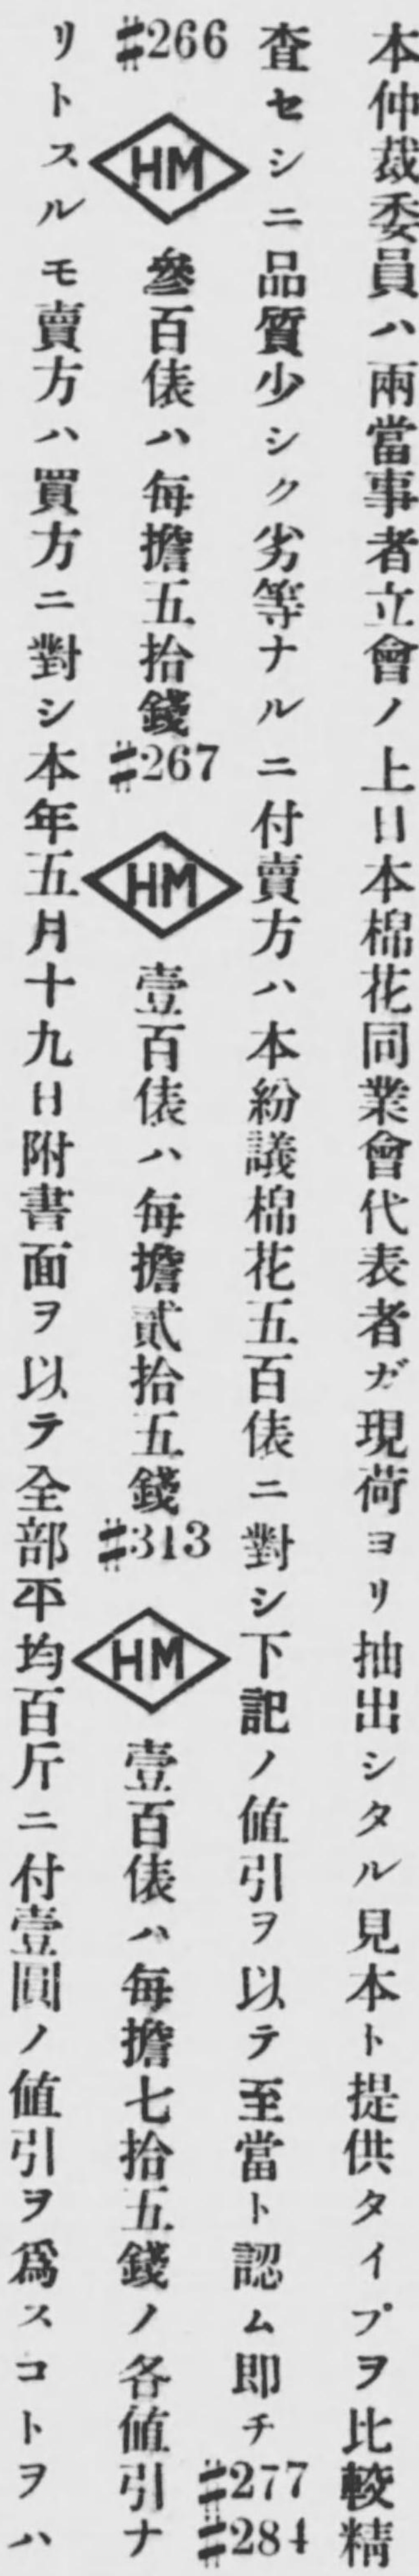 本仲裁委員ハ兩當事者立會ノ上日本棉花同業會代表者ガ現荷ヨリ抽出シタル見本ト提供タイプヲ比較精
査セシニ品質少シク劣等ナルニ付賣方ハ本紛議棉花五百俵ニ對シ下記ノ値引ヲ以テ至當ト認ム即チ#277 #284
#266 HM 參百俵ハ每擔五拾錢#267 HM 壹百俵ハ每擔貳拾五錢#313 HM 壹百俵ハ每擔七拾五錢ノ各値引ナ
リトスルモ賣方ハ買方ニ對シ本年五月十九日附書面ヲ以テ全部平均百斤ニ付壹圓ノ値引ヲ爲スコトヲハ